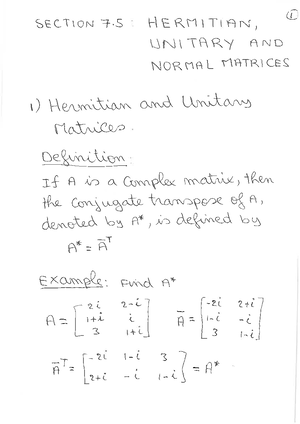 ①
SECTION 7.5 : HERMITIAN,
UNITARY AND
NORMAL MATRICES
1) Hermitian and Unitary
Matrices.
Definition:
If A is a Complex matrix, then
the conjugate transpose of A,
denoted by A*, is defined by
A* = Āᵀ
Example: Find A*
A = [2i 2-i; 1+i i; 3 1+i] Ā = [-2i 2+i; 1-i -i; 3 1-i]
Āᵀ = [-2i 1-i 3; 2+i -i 1-i] = A*